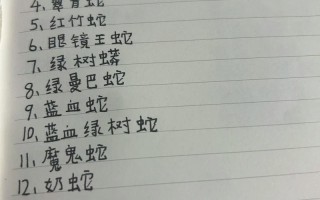 4、翠青蛇
5、红竹蛇
6、眼镜王蛇
7、绿树蟒
8、绿曼巴蛇
9、蓝血蛇
10、蓝血绿树蛇
11、魔鬼蛇
12、奶蛇